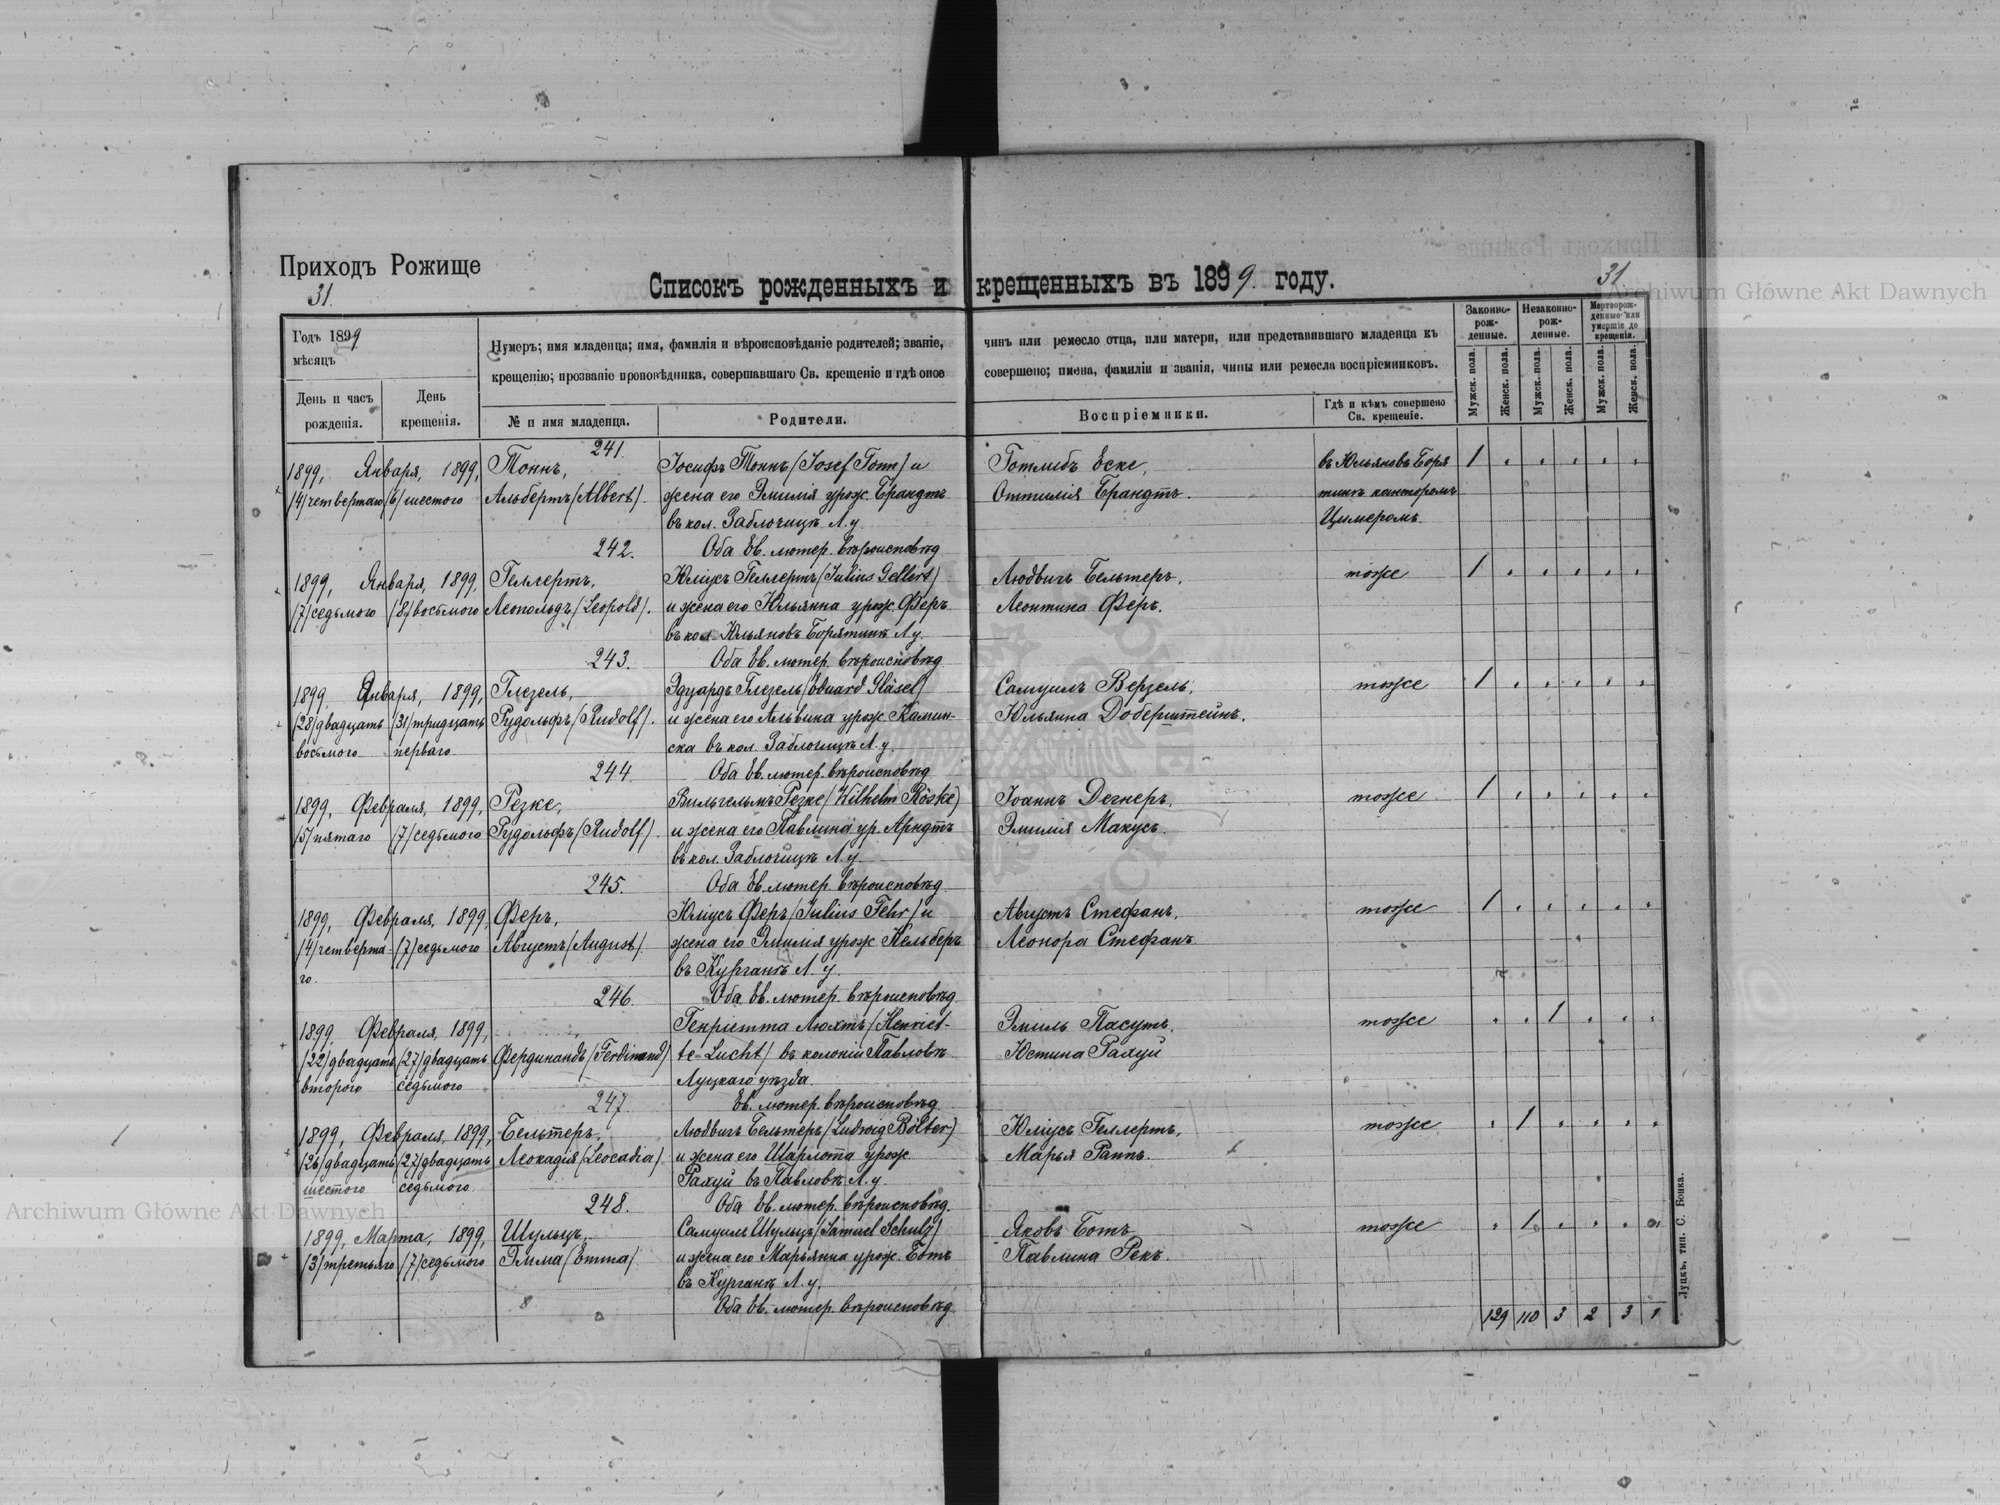 Приходъ Рожище
31.
31
Списокъ рожденныхъ и крещенныхъ въ 1899. году.
Archiwum Główne Akt Dawnych
Годъ 1899
мѣсяцъ
День и часъ рожденія.
День крещенія.
Нумеръ; имя младенца; имя, фамилія и вѣроисповѣданіе родителей; званіе,
крещенію; прозваніе проповѣдника, совершавшаго Св. крещеніе и гдѣ оное
№ и имя младенца.
Родители.
чинъ или ремесло отца, или матери, или представившаго младенца къ
совершено; имена, фамиліи и званія, чины или ремесла воспріемниковъ.
Воспріемники.
Гдѣ и кѣмъ совершено Св. крещеніе.
Законно-рож-денные.
Незаконно-рож-денные.
Мертворож-денные или умершіе до крещенія.
Мужск. пола.
Женск. пола.
Мужск. пола.
Женск. пола.
Мужск. пола.
Женск. пола.
241.
1899, Января, 1899, Тоннъ, Іосифъ Тоннъ (Josef Tonn) и Готлибъ Еске, въ Юльяновъ Боря 1
(4) четвертаго (6) шестого Альбертъ (Albert). жена его Эмилія урож. Брандтъ Оттилія Брандтъ. тинъ канторомъ
въ кол. Заблочицѣ Л. у. Цимеромъ.
242. Оба Ев. лютер. вѣроисповѣд.
1899, Января, 1899, Геллертъ, Юліусъ Геллертъ (Julius Gellert) Людвигъ Бельтеръ, тоже 1
(7) седьмого (8) восьмого Леопольдъ (Leopold). и жена его Юльянна урож. Феръ Леонтина Феръ.
въ кол. Юльяновъ Борятинъ Л. у.
243. Оба Ев. лютер. вѣроисповѣд.
1899, Января, 1899, Глезель, Эдуардъ Глезель (Eduard Gläsel) Самуилъ Верзель, тоже 1
(28) двадцать (31) тридцать Рудольфъ (Rudolf). и жена его Альвина урож. Камин- Юльянна Доберштейнъ.
восьмого перваго ска въ кол. Заблочицѣ Л. у.
244. Оба Ев. лютер. вѣроисповѣд.
1899, Февраля, 1899, Резке, Вильгельмъ Резке (Wilhelm Röske) Іоаннъ Дегнеръ, тоже 1
(5) пятаго (7) седьмого Рудольфъ (Rudolf). и жена его Павлина ур. Арндтъ Эмилія Макусъ.
въ кол. Заблочицѣ Л. у.
245. Оба Ев. лютер. вѣроисповѣд.
1899, Февраля, 1899, Феръ, Юліусъ Феръ (Julius Fehr) и Августъ Стефанъ, тоже 1
(4) четверта- (7) седьмого Августъ (August). жена его Эмилія урож. Кельберъ Леонора Стефанъ.
го. въ Курганѣ Л. у.
246. Оба Ев. лютер. вѣроисповѣд.
1899, Февраля, 1899, Генріетта Люхтъ (Henriet- Эмиль Пасутъ, тоже 1
(22) двадцать (27) двадцать Фердинандъ (Ferdinand) te Lucht) въ колоніи Павловкѣ Юстина Рахуй
второго седьмого Луцкаго уѣзда.
247. Ев. лютер. вѣроисповѣд.
1899, Февраля, 1899, Бельтеръ, Людвигъ Бельтеръ (Ludwig Bölter) Юліусъ Геллертъ, тоже 1
(26) двадцать (27) двадцать Леокадія (Leocadia). и жена его Шарлота урож. Марья Раппъ.
шестого седьмого. Рахуй въ Павловкѣ Л. у.
248. Оба Ев. лютер. вѣроисповѣд.
1899, Марта, 1899, Шульцъ, Самуилъ Шульцъ (Samuel Schulz) Яковъ Ботъ, тоже 1
(3) третьяго (7) седьмого Эмма (Emma). и жена его Марьянна урож. Ботъ Павлина Рекъ.
въ Курганѣ Л. у.
Оба Ев. лютер. вѣроисповѣд.
129 110 3 2 3 1
Луцкъ, тип. С. Бонка.
Archiwum Główne Akt Dawnych